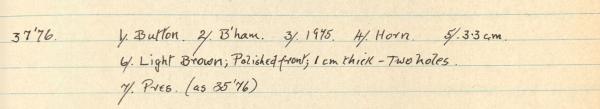 37'76. 1/. Button. 2/. B'ham. 3/. 1975. 4/. Horn. 5/. 3.3 cm.
6/. Light Brown; Polished front; 1 cm thick - Two holes.
7/. Pres. (as 35'76)